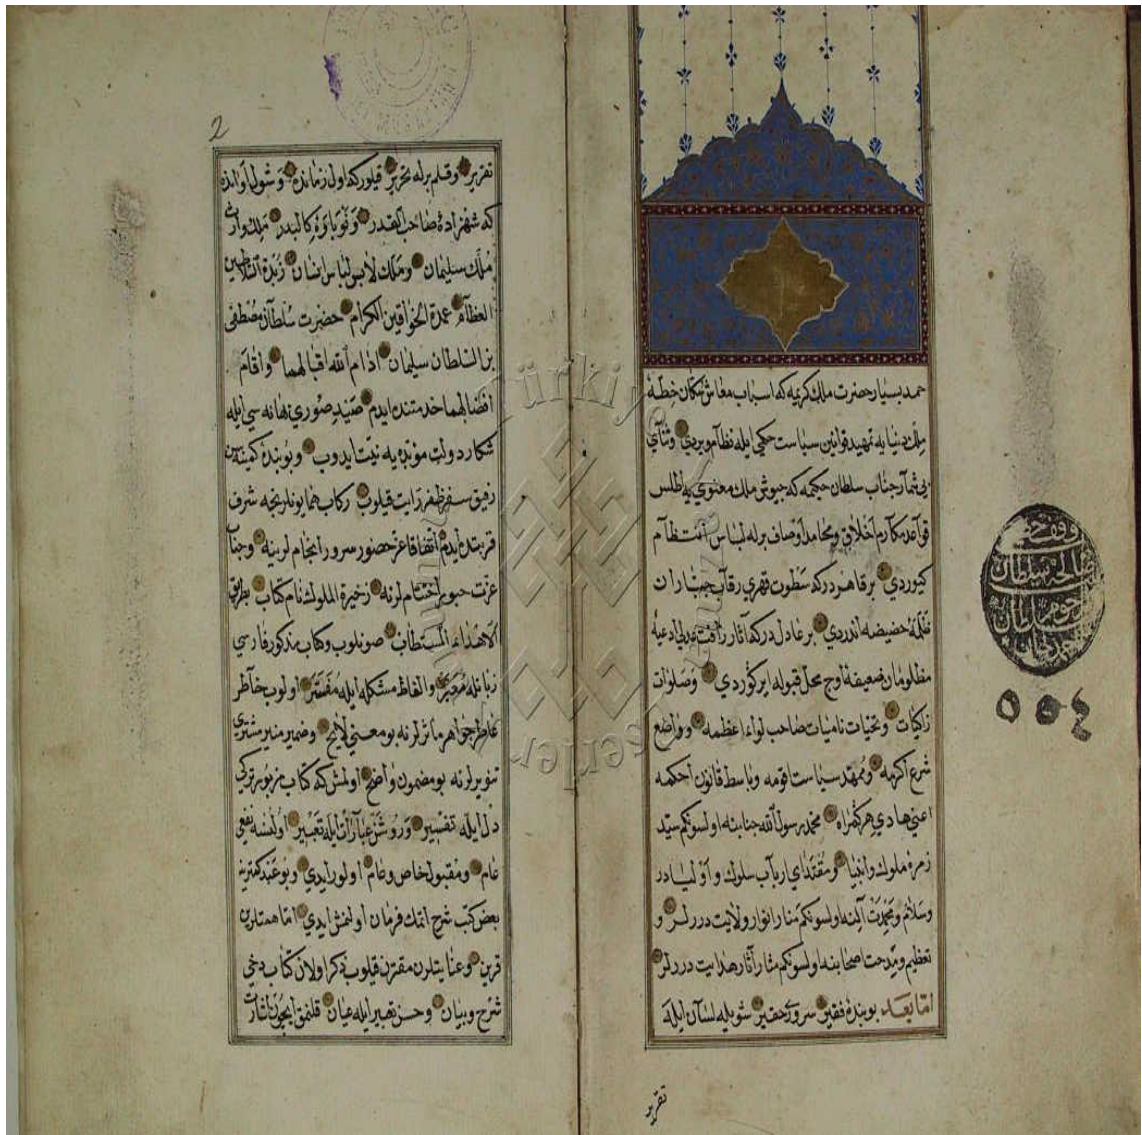 حمد بسيار حضرت ملك كريمه كه اسباب معاش سكان خطهٔ
ملك دنيايه تمهيد قوانين سياست حكمي ايله نظام ويردي وثناي
بي شمار جناب سلطان حكيمه كه جيوش ملك معنوي يه اطلس
قواعد مكارم اخلاق ومحامد اوصاف برله لباس انتظام
كيوردي بر قاهر دركه سطوت قهري رقاب جباران
حضيضه اندردي بر عادل دركه آثار رأفت عدلي ادعيهٔ
مظلومان ضعيفهٔ اوج محل قبوله ايركوردي وصلوات
زاكيات وتحيات ناميات صاحب لواء اعظمه وواضع
شرع اكرمه وممهد سياست اقومه وباسط قانون احكمه
اعني هادي هر كمراه محمد رسول الله جنابنه اولسونكم سيد
زمرهٔ ملوك وانبيا ومقتداي ارباب سلوك واوليادر
وسلام آلينه اولسونكم منار انوار ولايت دررلر و
تعظيم ومدحت اصحابنه اولسونكم مثار آثار هدايت دررلر
اما بعد بو بندهٔ فقير سروري حقير شويله لسان ايله
تقرير
وقف
سلطان
٥٥٤
2
تقرير وقلم برله تحرير قيلوركه اول زمانده وشول اوانده
كه شهزادهٔ صاحب القدر ونوباوهٔ كالبدر ملك وارث
ملك سليمان وملك لابس لباس انسان زبدة السلاطين
العظام عمدة الخواقين الكرام حضرت سلطان مصطفى
بن السلطان سليمان ادام الله اقبالهما واقام
افضالهما خدمتنده ايدم صيد صوري بهانه سي ايله
شكار دولت مؤبده يه نيت ايدوب وبو بندهٔ كمينه سن
رفيق سفر ظفر رايت قيلوب ركاب همايونلرنجه شرف
قربتده ايدم اتفاقا عز حضور سرور انجام لرينه وجناب
عزت حبور اختتام لرنه زخيرة الملوك نام كتاب بطريق
الاهداء المستطاب صونلوب وكتاب مذكور فارسي
زبانله معبر والفاظ مشكله ايله مفسر اولوب خاطر
عاطر جواهر مآثرلرنه بو معني لايح وضمير منير مشتري
تنويرلرنه بو مضمون واضح اولمش كه كتاب مزبور تركي
دل ايله تفسير وروشن عبارات ايله تعبير اولنسه نفعي
عام ومقبول خاص وعام اولورايدي وبو عبد كمترينه
بعض كتب شرح اتمك فرمان اولنمش ايدي اما همتلرين
قرين وعنايتلرن مقترن قيلوب ذكر اولان كتاب دخي
شرح وبيان وحسن تعبير ايله عيان قلنمق ايچون اشارت
Türkiye